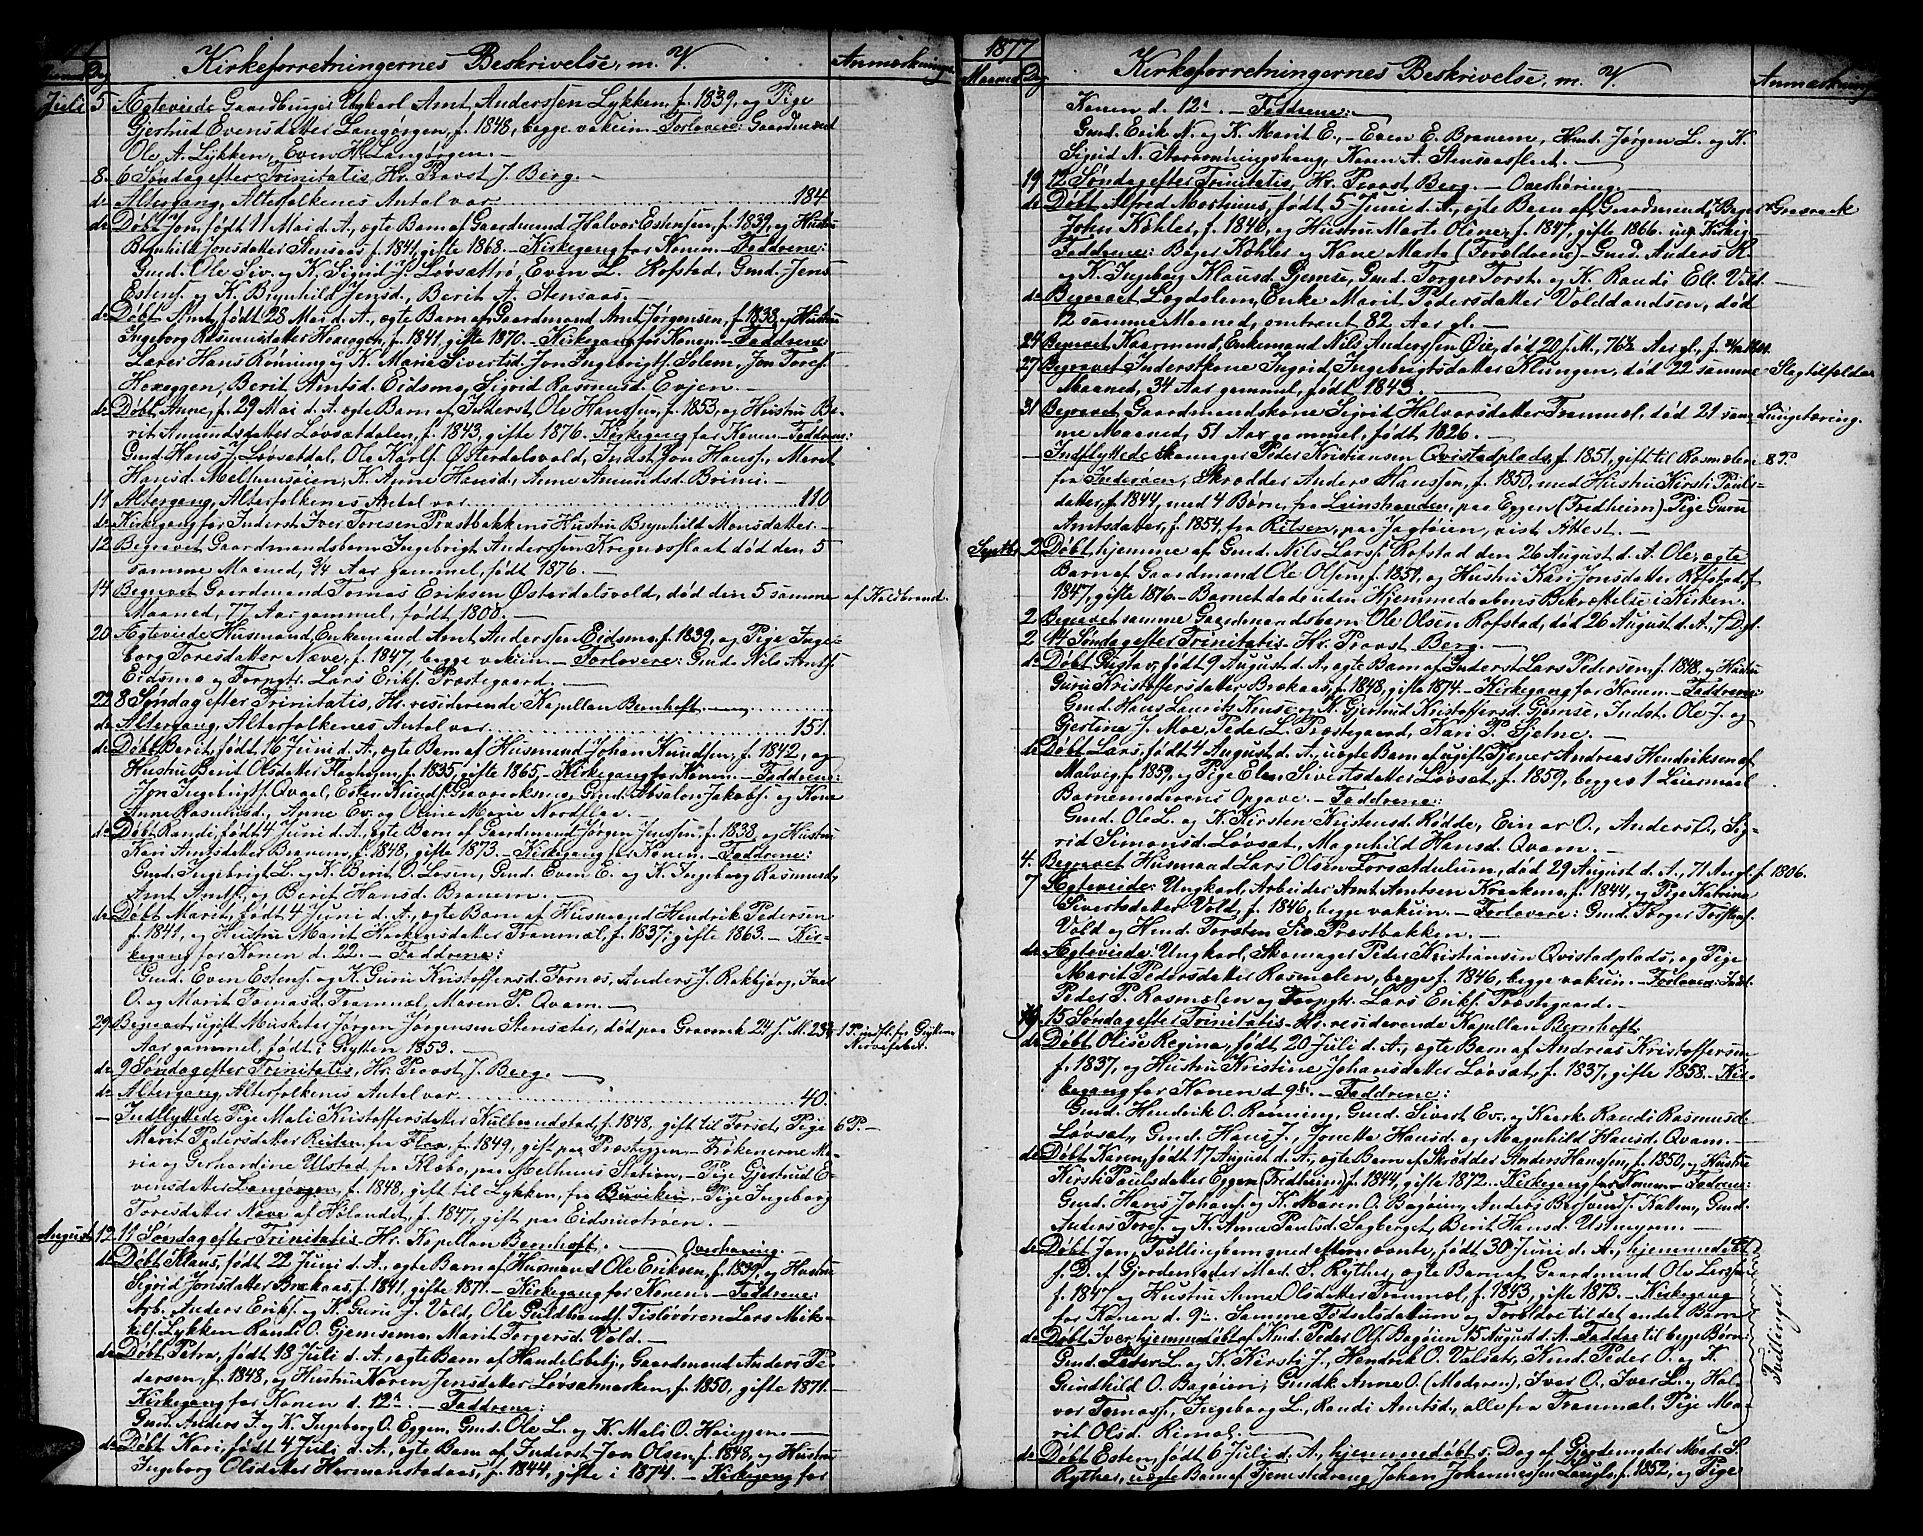 Kirkeforretningernes Beskrivelse, m. V.
Anmærkninger
Juli 5 Ægteviede Gaardbruger Ungkarl Arnt Anderssen Lykken, f. 1839, og Pige
Gjertrud Evensdatter Langørgen, f. 1848, begge vakcin. Forlovere: Gaardmænd
Ole A. Lykken, Even H. Langørgen.
8. 6 Søndag efter Trinitatis, Hr. Provst J. Berg.
do Altergang, Alterfolkenes Antal var 184
do Døbt Jon, født 11 Mai d. A., ægte Barn af Gaardmand Halvor Estensen, f. 1839, og Hustru
Brynhild Jonsdatter Stensaas, f. 1841, gifte 1868. Kirkegang for Konen. Faddrene:
Gmd. Ole Siv. og K. Sigrid J. Løvsættrø, Even L. Rofstad, Gmd. Jens
Estens. og K. Brynhild Jensd., Berit A. Stensaas.
do Døbt Arnt, født 28 Mai d. A., ægte Barn af Gaardmand Arnt Jørgensen, f. 1838, og Hustru
Ingeborg Rasmusdatter Hoxeggen, f. 1841, gifte 1870. Kirkegang for Konen. Faddrene
Lærer Hans Rønning og K. Maria Sivertsd. Jon Ingebrigts. Solem, Jon Tores.
Hoxeggen, Berit Arntsd. Eidsmo, Sigrid Rasmusd. Evjen.
do Døbt Anne, f. 29 Mai d. A. ægte Barn af Inderst Ole Hanssen, f. 1853, og Hustru Be-
rit Amundsdatter Løvsætdalen, f. 1843, gifte 1876. Kirkegang for Konen. Faddrene:
Gmd. Hans J. Løvsætdal, Ole Karls. Østerdalsvold, Indst. Jon Hanss., Marit
Hansd. Melhusmoien, K. Anne Hansd., Anne Amundsd. Brimi.
11 Altergang, Alterfolkenes Antal var 110
do Kirkegang for Inderst Iver Toresen Præstbakkens Hustru Brynhild Monsdatter.
12 Begravet Gaardmandsbarn Ingebrigt Anderssen Kregnæsflaat død den 5
samme Maaned, 3/4 Aar gammel, født 1876.
14 Begravet Gaardmand Tomas Eriksen Østerdalsvold, død den 5 samme af Koldbrand.
Maaned, 77 Aar gammel, født 1800.
20 Ægteviede Husmand, Enkemand Arnt Anderssen Eidsmo, f. 1839, og Pige Inge-
borg Toresdatter Næve, f. 1847, begge vakcin. Forlovere: Gmd. Nils Arnts.
Eidsmo og Forpgtr. Lars Eriks. Præstegaard.
22 8 Søndag efter Trinitatis, Hr. residerende Kapellan Bernhoft.
do Altergang, Alterfolkenes Antal var 151.
do Døbt Berit, født 16 Juni d. A., ægte Barn af Husmand Johan Knudsen, f. 1842, og
Hustru Berit Olsdatter Flaahogn, f. 1835, gifte 1865, Kirkegang for Konen. Faddrene:
Jon Ingebrigts. Qvaal, Esten Knuds. Gravraksmo, Gmd. Absalon Jakobs. og Kone
Anne Rasmusd., Anne Ev. og Oline Marie Nordflaa.
do Døbt Randi, født 4 Juni d. A., ægte Barn af Gaardmand Jørgen Jenssen, f. 1838, og Hustru
Kari Arntsdatter Bravem, f. 1848, gifte 1873. Kirkegang for Konen. Faddrene:
Gmd. Ingebrigt L. og K. Berit O. Losen, Gmd. Even E. og K. Ingeborg Rasmusd,
Arnt Arnts. og Berit Hansd. Bravem.
do Døbt Marit, født 4 Juni d. A., ægte Barn af Husmand Hendrik Pedersen
f. 1841, og Hustru Marit Haakensdatter Trammæl, f. 1837, gifte 1863. Kir-
kegang for Konen d. 22. Faddrene:
Gmd. Even Estens. og K. Guru Kristoffersd. Fornes, Anders J. Rakbjørg, Iver
O. og Marit Tomasd. Trammæl, Maren P. Qvam.
29. Begravet, ugift Musketer Jørgen Jørgensen Stensæter, død paa Gravrok 24 f. M. 23 3/4
Aar gammel, født i Grytten 1853.
do 9 Søndag efter Trinitatis, Hr. Provst J. Berg.
do Altergang, Alterfolkenes Antal var 40.
Indflyttede Pige Mali Kristoffersdatter Kulbrandstad, f. 1848, gift til Forset, Pige 6 P.
Marit Pedersdatter Reiten, fra Flaa, f. 1849, gift paa Præsteggen. Frøkenerne Ma-
ria og Gerhardine Ulstad, fra Klæbo, paa Melhuus Station. Pige Gjertrud E-
vensdatter Langørgen, f. 1848, gift til Lykken, fra Buviken. Pige Ingeborg
Toresdatter Næve af Hølandet, f. 1847, gift paa Eidsmotrøen.
August 12 11 Søndag efter Trinitatis Hr. Kapellan Bernhoft. Overhøring.
do Døbt Klaus, født 22 Juni d. A., ægte Barn af Husmand Ole Eriksen, f. 1839, og Hustru
Sigrid Jonsdatter Brækaas, f. 1841, gifte 1871. Kirkegang for Konen. Faddrene:
Arb. Anders Eriks. og K. Guru J. Vold, Ole Guldbrands. Tisløvøren Lars Mik-
kils. Lykken Randi O. Gjemsemo, Marit Torgersd. Vold.
do Døbt Petra, født 18 Juli d. A., ægte Barn af Handelsbetj., Gaardmand Anders Pe-
dersen, f. 1848, og Hustru Karen Jensdatter Løvsetmarken, f. 1850, gifte 1871.
Kirkegang for Konen d. 12te. Faddrene:
Gmd. Anders J. og K. Ingeborg O. Eggen, Gmd. Ole L. og K. Mali O. Hauggen.
do Døbt Kari, født 4 Juli d. A., ægte Barn af Inderst Jon Olsen, f. 1848, og Hustru
Ingeborg Olsdatter Hermanstadaas, f. 1844, gifte i 1874. Kirkegang for
1877
Maaned Dag Kirkeforretningernes Beskrivelse, m. V. Anmærkning
Konen d. 12te. Faddrene:
Gmd. Erik N. og K. Marit E., Even E. Bravem, Hmd. Jørgen L. og K.
Sigrid N. Skrømningshaug, Karen A. Stensaasflaat.
19 12 Søndag efter Trinitatis, Hr. Provst Berg. Overhøring.
do Døbt Alfred Martinus, født 5 Juni d. A., ægte Barn af Gaardmand, Bager Gravraak
John Köhler, f. 1846, og Hustru Marta Oline, f. 1847, gifte 1866.
Faddrene: Bager Köhler og Kone Marta (Forældrene) Gmd. Anders K.
og K. Ingeborg Klausd. Gjemse, Gmd. Torger Torst. og K. Randi Ell. Vold.
do Begravet Lægdslem, Enke Marit Pedersdatter Volddandsen, død
12 samme Maaned, omtrent 82 Aar gl.
24 Begravet Kaarmand, Enkemand Nils Anderssen Øie, død 20 s. M., 76 1/2 Aar gl., f.
27 Begravet Inderstkone Ingrid Ingebrigtsdatter Klungen, død 22 samme Slagtilfælde
Maaned, 34 Aar gammel, født 1843.
31 Begravet Gaardmandskone Sigrid Halvorsdatter Trammæl, død 21 sam- Lungetæring.
me Maaned, 51 Aar gammel, født 1826.
Indflyttede Skomager Peder Kristiansen Qvistadplads, f. 1851, gift til Rosmælen 8 P.
fra Inderøen, Skrædder Anders Hanssen, f. 1850, med Hustru Kirsti Pauls-
datter, f. 1844, med 4 Børn, fra Leinstranden, paa Eggen (Fredheim) Pige Guru
Arntsdatter, f. 1854, fra Rissen, paa Jagtøien, vist Attest.
Septbr. 2 Døbt hjemme af Gmd. Nils Larss. Rofstad den 26 August d. A. Ole, ægte
Barn af Gaardmand Ole Olsen, f. 1851, og Hustru Kari Jonsdatter Rofstad, f.
1847, gifte 1876. Barnet døde uden Hjemmedaabens Bekræftelse i Kirken.
2 Begravet samme Gaardmandsbarn Ole Olsen Rofstad, død 26 August d. A., 7 D. gl.
2 14 Søndag efter Trinitatis. Hr. Provst Berg.
do Døbt Gustav, født 9 August d. A., ægte Barn af Inderst Lars Pedersen, f. 1848, og Hustru
Guru Kristoffersdatter Brækaas, f. 1848, gifte 1874. Kirkegang for Konen. Faddrene:
Gmd. Hans Laurits Muus og K. Gjertrud Kristoffersd. Gjemse, Indst. Ole J. og
Gjertine J. Moe, Peder L. Præstegaard, Kari P. Sjetne.
do Døbt Lars, født 4 August d. A., uægte Barn af ugift Tjener Andreas Hendriksen af
Malvig, f. 1859, og Pige Elen Sivertsdatter Løvset, f. 1859, begges 1 Leiermaal
Barnemoderens Opgave. Faddrene:
Gmd. Ole L. og K. Kirsten Kristensd. Rødde, Einar O., Anders O., Sig-
rid Simonsd. Løvset, Magnhild Hansd. Qvam.
4. Begravet Husmand Lars Olsen Loro Ardulum, død 29 August d. A., 71 Aar gl. f. 1806.
7 Ægteviede: Ungkarl, Arbeider Arnt Arntsen Kraakmo, f. 1844, og Pige Katrina
Sivertsdatter Vold, f. 1846, begge vakcin. Forlovere: Gmd. Torger Torstens.
Vold og Hmd. Torsten Siv. Præstbakken.
do Ægteviede: Ungkarl, Skomager Peder Kristiansen Qvistadplads, og Pige
Marit Pedersdatter Rosmælen, begge f. 1846, begge vakcin. Forlovere: Indst.
Peder P. Rosmælen og Forpgtr. Lars Eriks. Præstegaard.
15 Søndag efter Trinitatis. Hr. residerende Kapellan Bernhoft.
do Døbt Olise Regina, født 20 Juli d. A., ægte Barn af Andreas Kristoffersen
f. 1837, og Hustru Kristine Johansdatter Løvset, f. 1837, gifte 1858. Kir-
kegang for Konen d. 9de. Faddrene:
Gmd. Hendrik O. Rønning, Gmd. Sivert Ev. og Kaark. Randi Rasmusd.
Løvset, Gmd. Hans J., Jonetta Hansd. og Magnhild Hansd. Qvam.
do Døbt Karen, født 17 August d. A., ægte Barn af Skrædder Anders Hanssen, f. 1850, og Hustru
Kirsti Paulsdatter Eggen (Fredheim) f. 1844, gifte 1872. Kirkegang for Konen. Faddrene:
Gmd. Hans Johans. og K. Maren O. Bagøien, Anders Bersvends. Kallem, Gmd.
Anders Tores. og K. Anne Paulsd. Sagberget, Berit Hansd. Ustmyren.
do Døbt Jon, Tvillingbarn med efternævnte, født 30 Juni d. A., hjemmedøbt
s. D. af Gjordemoder Mad. S. Ryther, ægte Barn af Gaardmand Ole Larssen
f. 1847 og Hustru Anne Olsdatter Trammæl, f. 1843, gifte 1873. Kirkegang
for Konen d. 9de. Samme Fødselsdatum og Forældre til det andet Barn
do Døbt Iver, hjemmedøbt af Kmd. Peder Ols. Bagøien 15 August d. A. Faddre til begge Børn:
Gmd. Peder L. og K. Kirsti J., Hendrik O. Valsæt, Kmd. Peder O. og K.
Gundhild O. Bagøien; Gmdk. Anne O. (Moderen), Iver O., Iver L. og Hal-
vor Tomass., Ingeborg L., Randi Arntsd., alle fra Trammæl, Pige Ma-
rit Olsd. Rimol.
Tvillinger.
do Døbt Esten, født 6 Juli d. A., hjemmedøbt s. Dag af Gjordemoder Mad. S.
Ryther, uægte Barn af Tjenestedreng Johan Johannessen Lauglo, f. 1852, og Pige